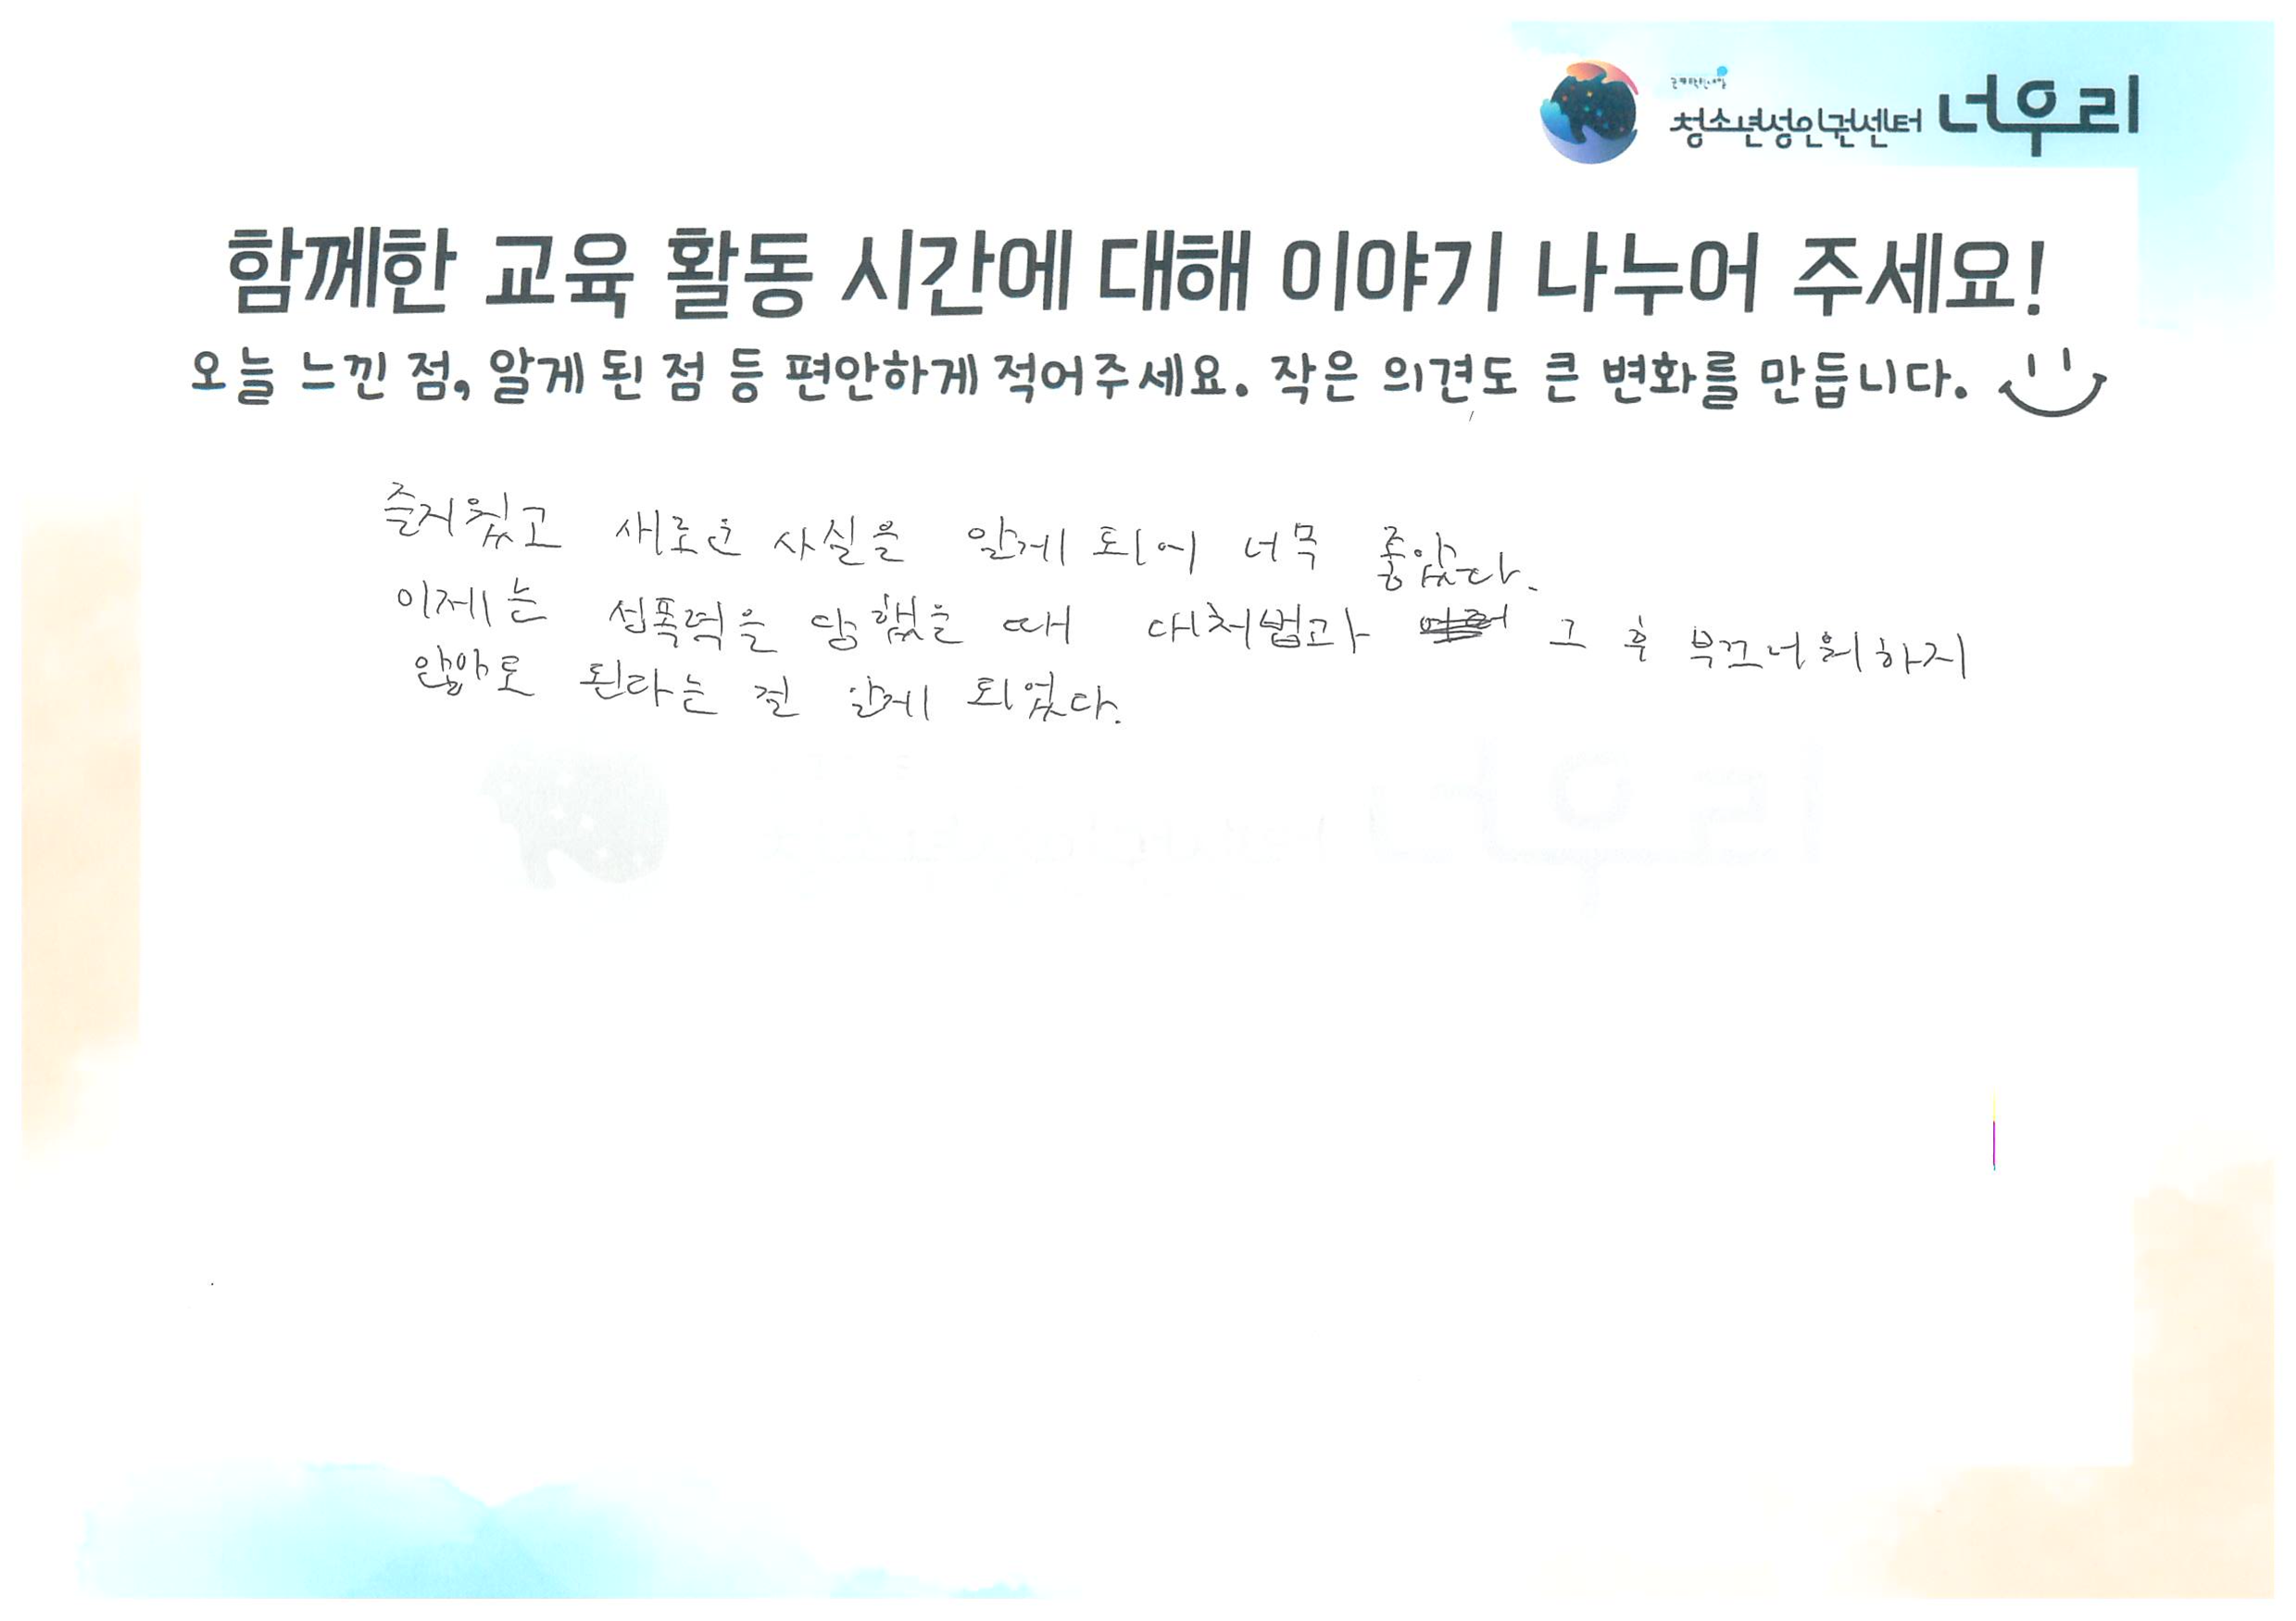 청소년성인권센터 너우리
함께한 교육 활동 시간에 대해 이야기 나누어 주세요!
오늘 느낀 점, 알게 된 점 등 편안하게 적어주세요. 작은 의견도 큰 변화를 만듭니다.
즐거웠고 새로운 사실을 알게 되어 너무 좋았다.
이제는 성폭력을 당했을 때 대처법과 그 후 부끄너워하지
않아로 된라는 걸 알게 되었다.